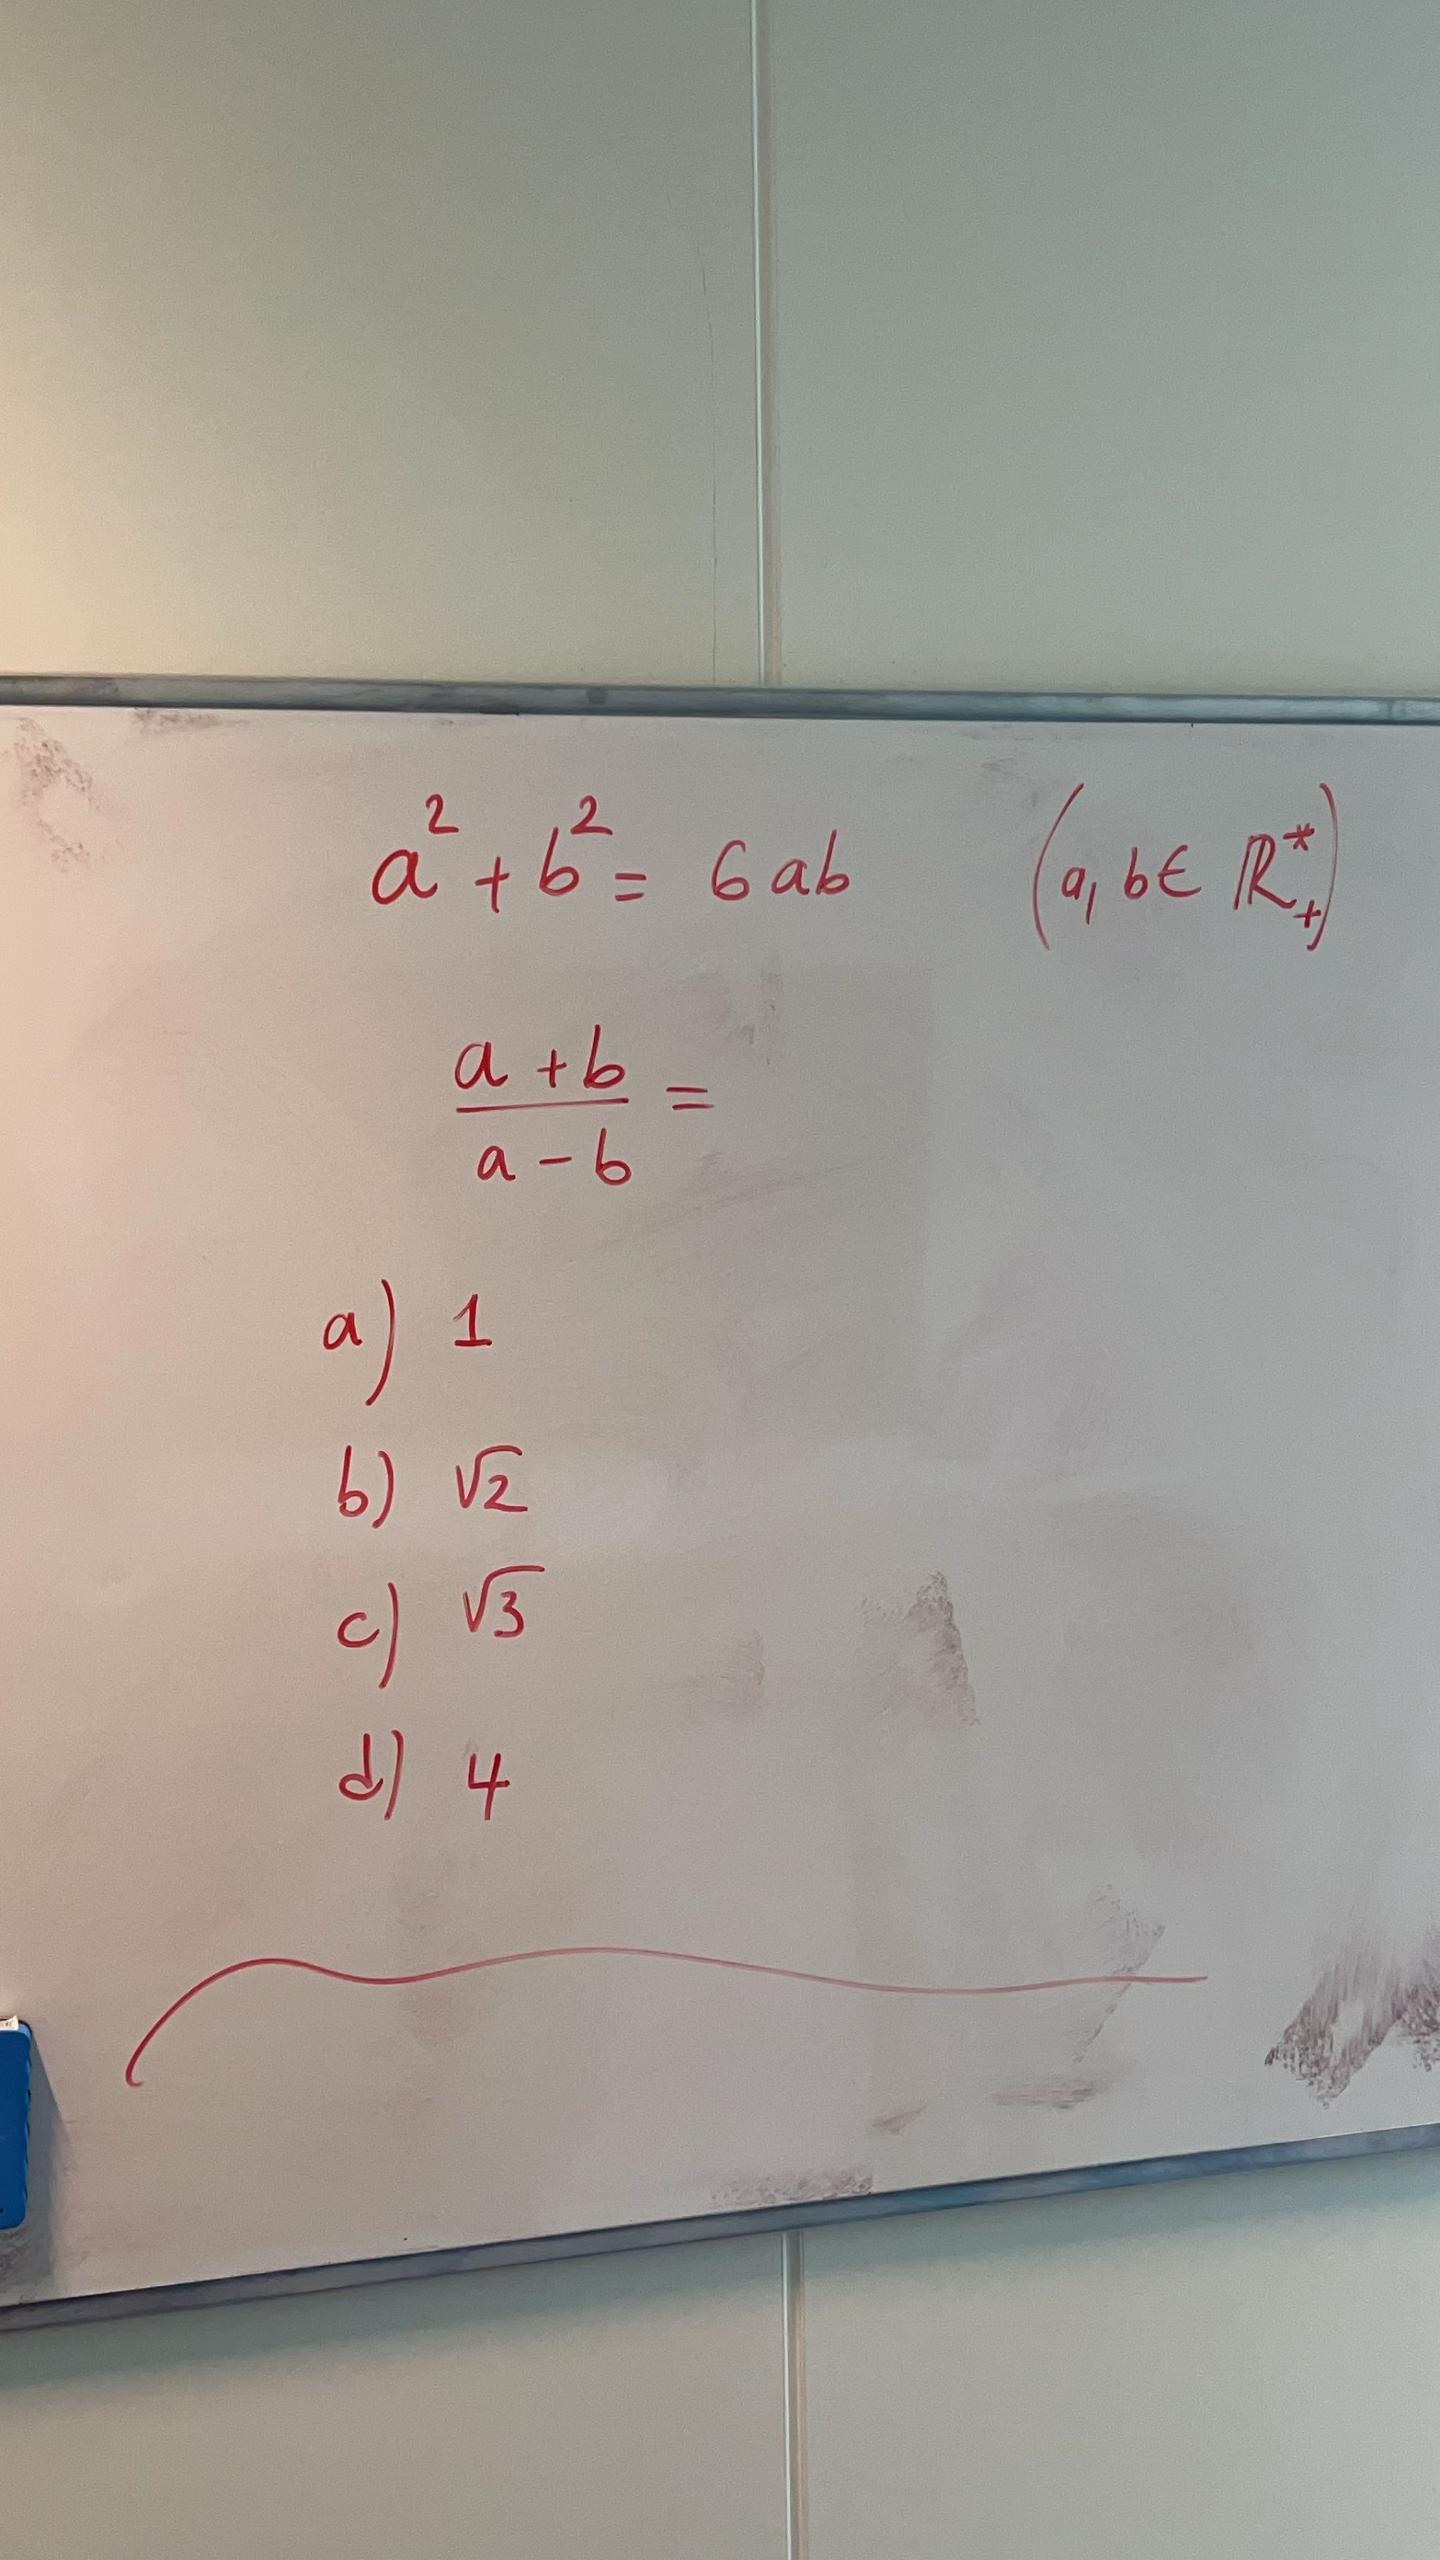 a² + b² = 6ab (a, b ∈ ℝ*₊)
a + b
a - b =
a) 1
b) √2
c) √3
d) 4